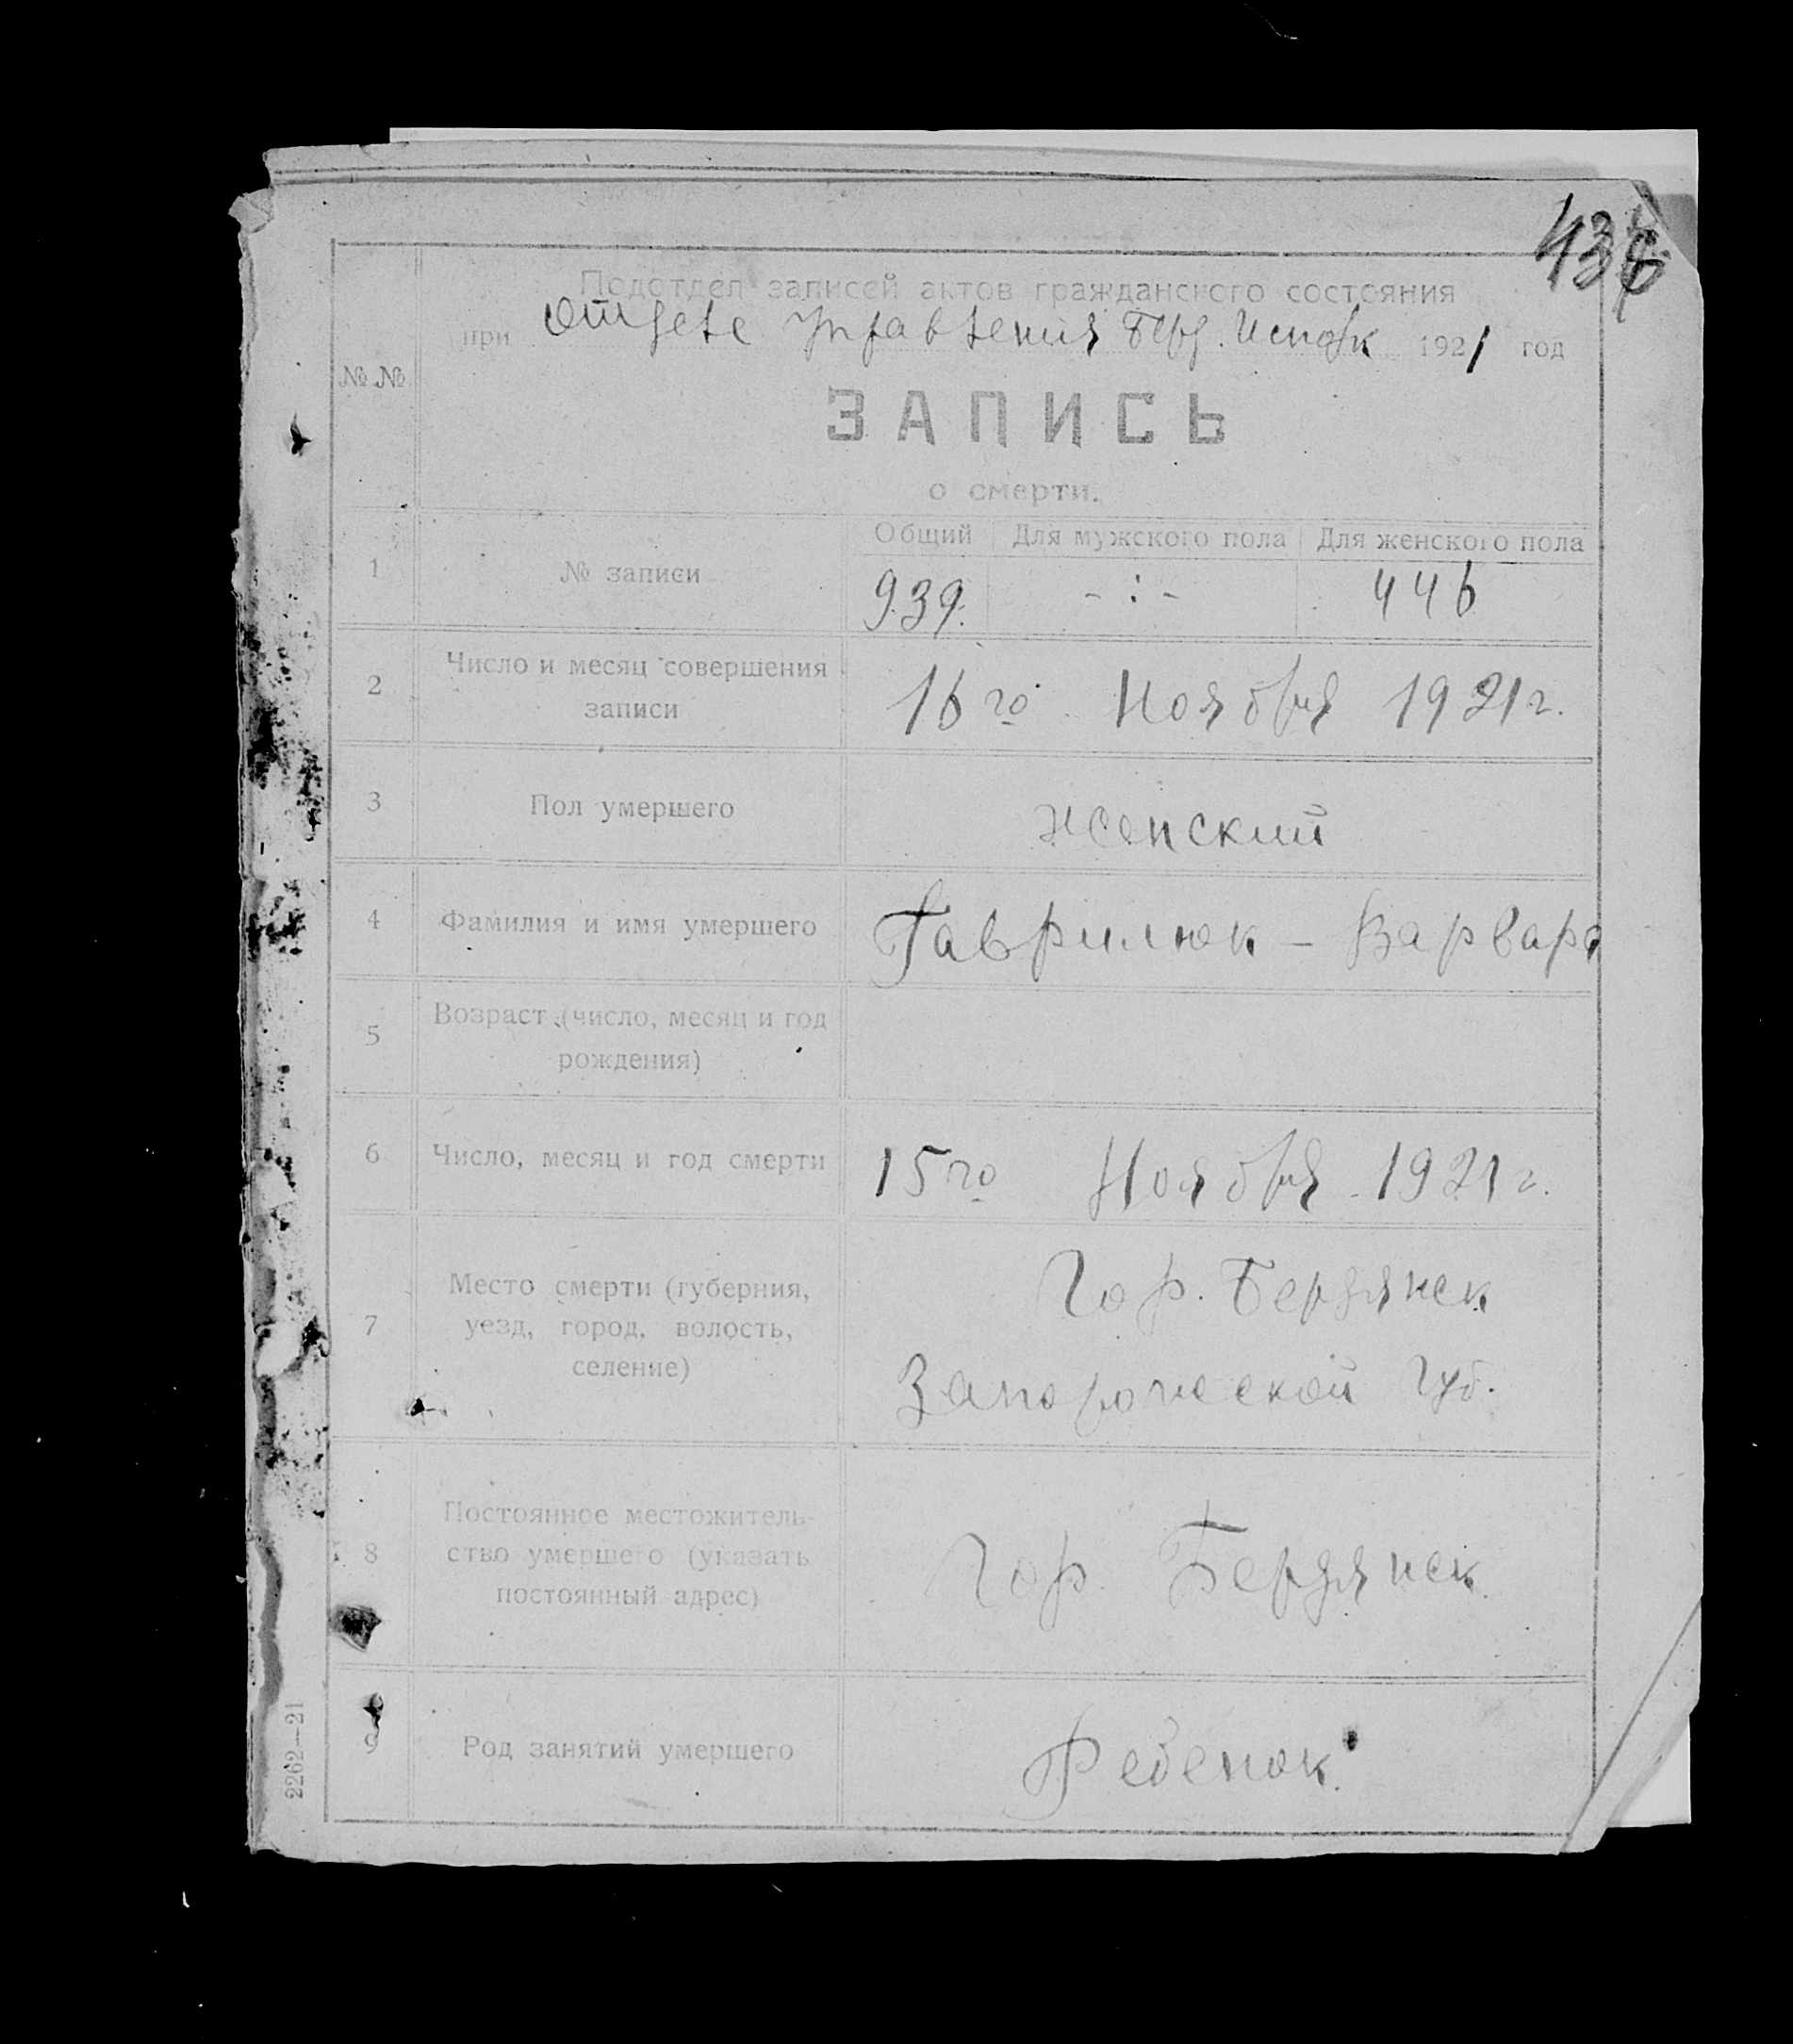 Подотдел записей актов гражданского состояния
при Отделе Управления Берд. Исполк 1921 год
№ №
ЗАПИСЬ
о смерти.
Общий Для мужского пола Для женского пола
1 № записи 939. - : - 446
2 Число и месяц совершения
записи
16го Ноября 1921 г.
3 Пол умершего Женский
4 Фамилия и имя умершего Гаврилюк - Варвара
5 Возраст (число, месяц и год
рождения)
6 Число, месяц и год смерти 15го Ноября 1921 г.
7 Место смерти (губерния,
уезд, город, волость,
селение)
Гор. Бердянск
Запорожской Губ.
8 Постоянное местожитель-
ство умершего (указать
постоянный адрес)
Гор. Бердянск
9 Род занятий умершего Ребенок.
2262—21